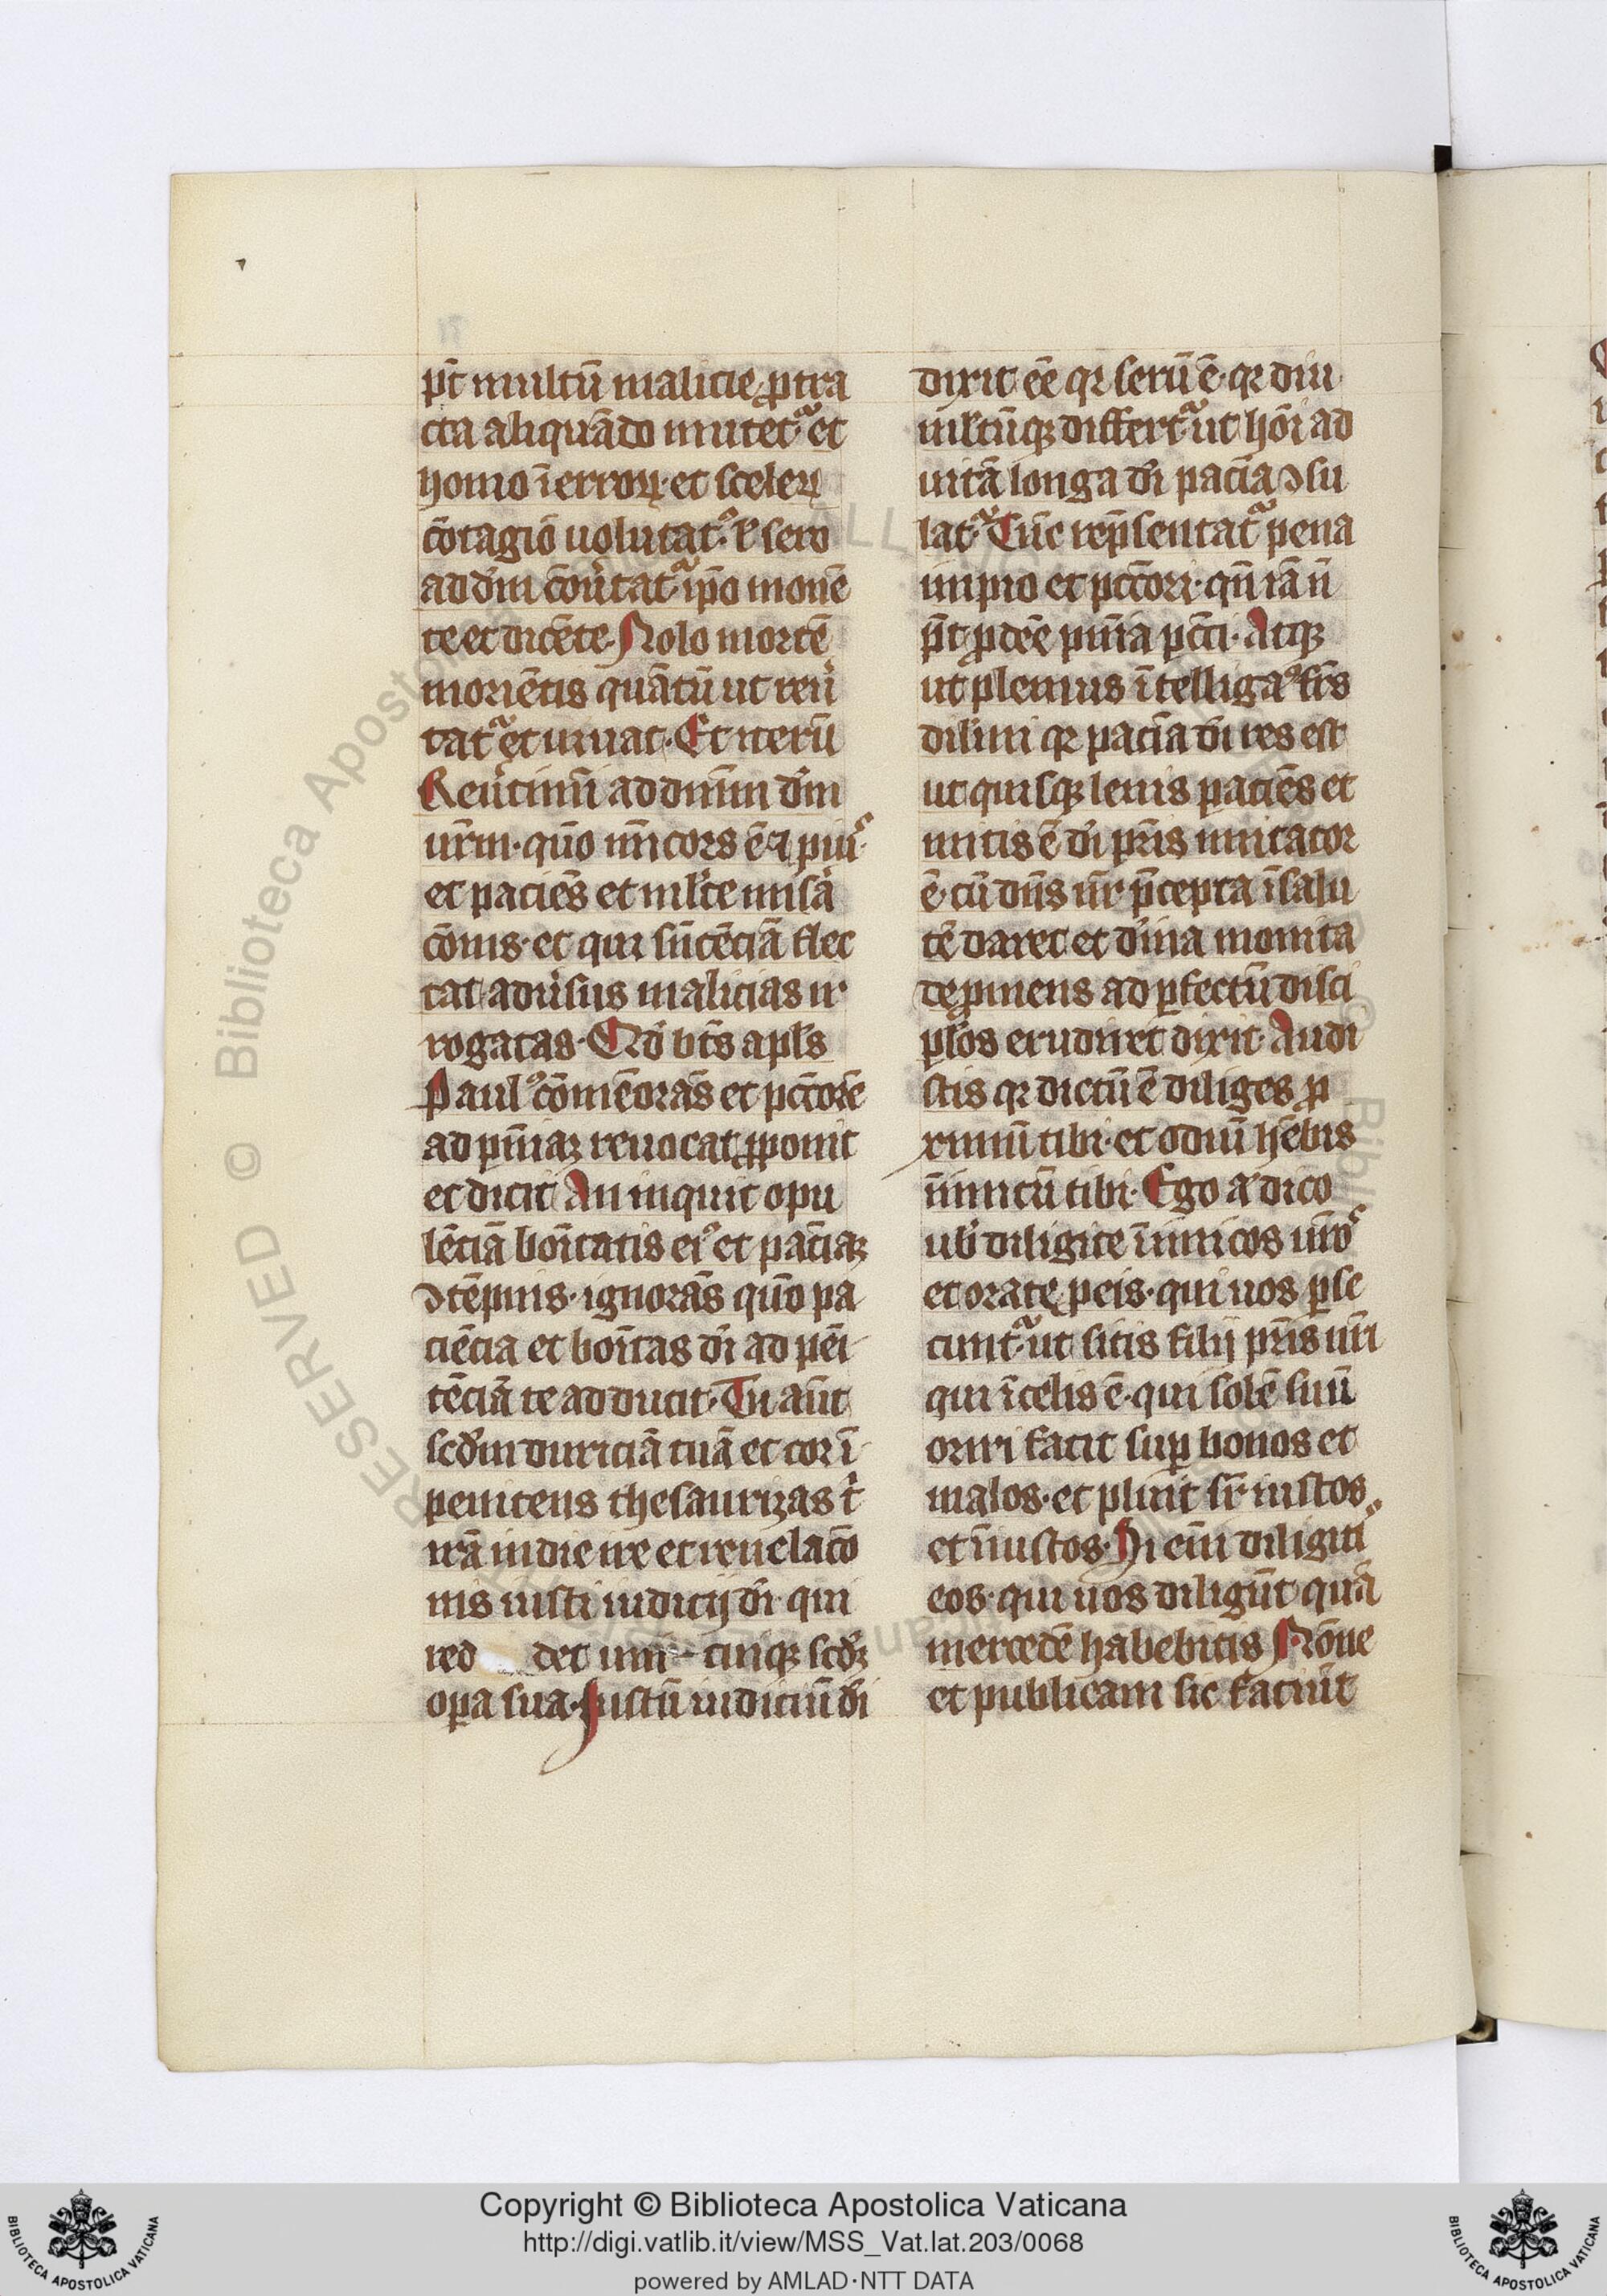 pt̄ multū malicie ꝓtra
cta aliquādo mutetᷣ et
homo ī errorꝝ et scelerꝝ
cōtagiō uolutatꝰ· ł sero
ad dm̄ cōu̾tatᷣ ip̄o monē
te et dicēte· Nolo mortē
moriētis quātū ut reu̾
tatᷣ et uiuat· Et iterū
Reu̾timī ad dnm̄ dm̄
ur̄m· quō mīcors ē ⁊ piuˢ·
et paciēs et ml̄te misa̾
cōnis· et qui sn̄tēciā flec
tat adu̾sus malicias ir
rogatas· Qd̄ bt̄s apl̄s
Paulꝰ cōmēorās et pctōre
ad pn̄iaꝫ reuocat ꝓponit
et dicit An inquit opu
lētiā bōitatis eiꝰ et paciaꝫ
ↄtēpnis· ignorās quō pa
ciētia et bōitas dī ad pēi
tēciā te adducit· Tu aūt
scdm̄ duriciā tuā et cor ī
penitens thesaurizas t̾
irā in die ire et reuelacō
nis iusti iudicij dī qui
red det uni cuiqꝫ scd̄ꝫ
oꝑa sua· Iustū iudiciū dī
dixit ēē qꝛ serū ē· qꝛ diu
ml̄tūqꝫ differtᷣ ut hōi ad
uitā longa dī pacīa ↄsu
latᷣ· Tūc rep̄sentatᷣ pena
impio et pctōri· qn̄ iā n̄
pt̄ ꝓdēē pn̄ia pcc̄i· Atqꝫ
ut plenius ītelligaꝰ fr̄s
dil̄mi qꝛ pacīa dī res est
ut quisqꝫ lenis paciēs et
mitis ē dī pr̄is imitator
ē· cū dn̄s nr̄ p̄cepta ī salu
tē daret et d̾ina monita
deꝓmens ad ꝑfectū disci
pl̄os erudiret dixit· Audi
stis qꝛ dictū ē diliges ꝓ
ximū tibi· et odiū hēbis
īimicū tibi· Ego aͧ dico
ub̾ diligite īimicos ur̄oˢ
et orate ꝓ eis· qui uos ꝑse
cuntᷣ· ut sitis filij pr̄is ur̄i
qui ī celis ē· qui solē suū
oriri facit suꝑ bonos et
malos· et pluit sr̄ iustos
et īiustos· Si eīm diligitiˢ
eos· qui uos diligūt quā
mercedē habebitis Nōne
et publicani sic faciūt
Copyright © Biblioteca Apostolica Vaticana
http://digi.vatlib.it/view/MSS_Vat.lat.203/0068
powered by AMLAD·NTT DATA
BIBLIOTECA APOSTOLICA VATICANA
BIBLIOTECA APOSTOLICA VATICANA